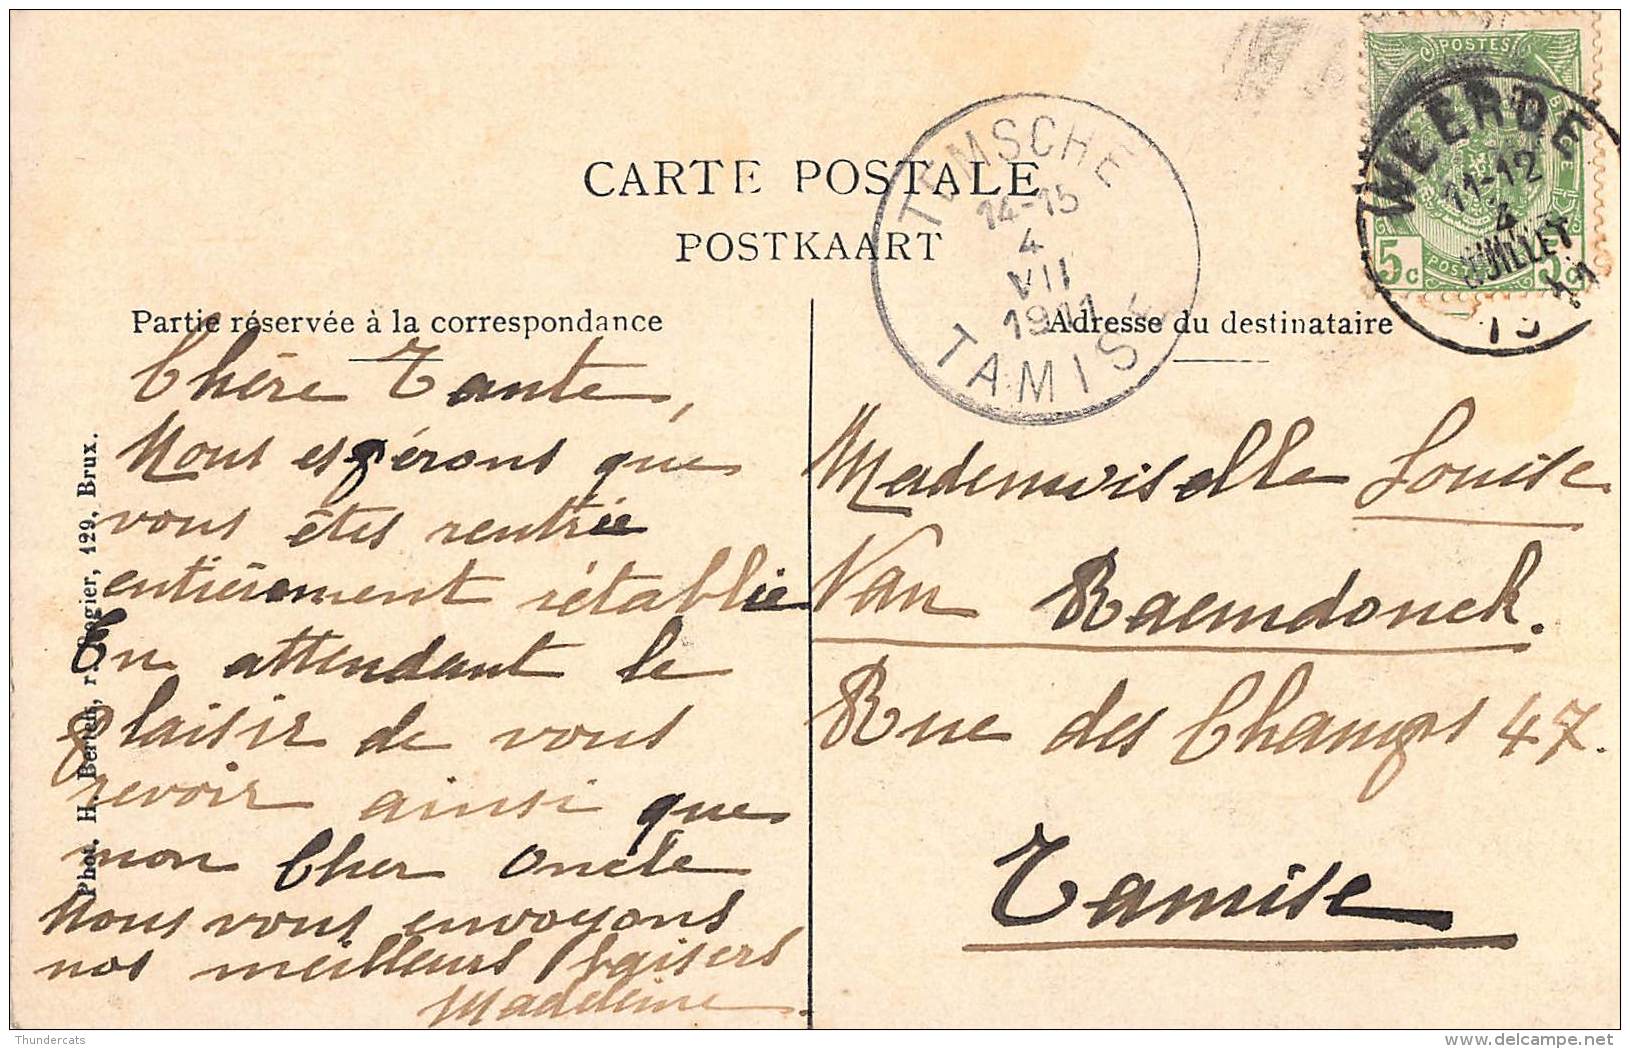 CARTE POSTALE
POSTKAART
Partie réservée à la correspondance
Adresse du destinataire
Chère Tante,
Nous espérons que
vous êtes rentrée
entièrement rétablie
En attendant le
plaisir de vous
revoir ainsi que
mon Cher Oncle
Nous vous envoyons
nos meilleurs baisers
Madeleine.
Mademoiselle Louise
Van Raemdonck.
Rue des Champs 47.
Tamise
Phot. H. Bertels, r. Rogier, 129, Brux.
TEMSCHE
14-15
4
VII
1911
TAMISE
POSTES
WEERDE
11-12
4
JUILLET
5c
5c
Thundercats
delcampe.net